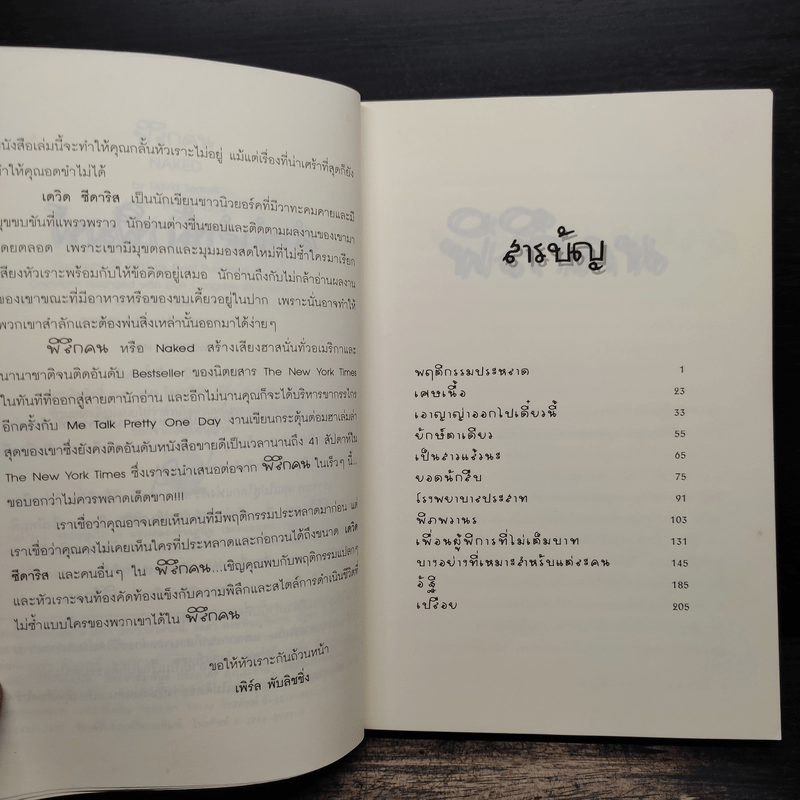 นังสือเล่มนี้จะทำให้คุณกลั้นหัวเราะไม่อยู่ แม้แต่เรื่องที่น่าเศร้าที่สุดก็ยัง
ทำให้คุณอดขำไม่ได้
เดวิด ซีดาริส เป็นนักเขียนชาวนิวยอร์คที่มีวาทะคมคายและมี
มุขขบขันที่แพรวพราว นักอ่านต่างชื่นชอบและติดตามผลงานของเขามา
ดยตลอด เพราะเขามีมุขตลกและมุมมองสดใหม่ที่ไม่ซ้ำใครมาเรียก
เสียงหัวเราะพร้อมกับให้ข้อคิดอยู่เสมอ นักอ่านถึงกับไม่กล้าอ่านผลงาน
ของเขาขณะที่มีอาหารหรือของขบเคี้ยวอยู่ในปาก เพราะนั่นอาจทำให้
พวกเขาสำลักและต้องพ่นสิ่งเหล่านั้นออกมาได้ง่ายๆ
พิรึกคน หรือ Naked สร้างเสียงฮาสนั่นทั่วอเมริกาและ
นานาชาติจนติดอันดับ Bestseller ของนิตยสาร The New York Times
ในทันทีที่ออกสู่สายตานักอ่าน และอีกไม่นานคุณก็จะได้บริหารขากรรไกร
อีกครั้งกับ Me Talk Pretty One Day งานเขียนกระตุ้นต่อมฮาเล่มล่า
สุดของเขาซึ่งยังคงติดอันดับหนังสือขายดีเป็นเวลานานถึง 41 สัปดาห์ใน
The New York Times ซึ่งเราจะนำเสนอต่อจาก พิรึกคน ในเร็วๆ นี้...
ขอบอกว่าไม่ควรพลาดเด็ดขาด!!!
เราเชื่อว่าคุณอาจเคยเห็นคนที่มีพฤติกรรมประหลาดมาก่อน แต่
เราเชื่อว่าคุณคงไม่เคยเห็นใครที่ประหลาดและก่อกวนได้ถึงขนาด เดวิด
ซีดาริส และคนอื่นๆ ใน พิรึกคน...เชิญคุณพบกับพฤติกรรมแปลกๆ
และหัวเราะจนท้องคัดท้องแข็งกับความพิลึกและสไตล์การดำเนินชีวิตที่
ไม่ซ้ำแบบใครของพวกเขาได้ใน พิรึกคน
ขอให้หัวเราะกันถ้วนหน้า
เพิร์ล พับลิชชิ่ง
สารบัญ
พฤติกรรมประหลาด 1
เศษเนื้อ 23
เอาญาญ่าออกไปเดี๋ยวนี้ 33
ยักษ์ตาเดียว 55
เป็นสาวแล้วนะ 65
ยอดนักสืบ 75
โรงพยาบาลประสาท 91
พิภพวานร 103
เพื่อนผู้พิการที่ไม่เต็มบาท 131
บางอย่างที่เหมาะสำหรับแต่ละคน 145
อัฐิ 185
เปลือย 205